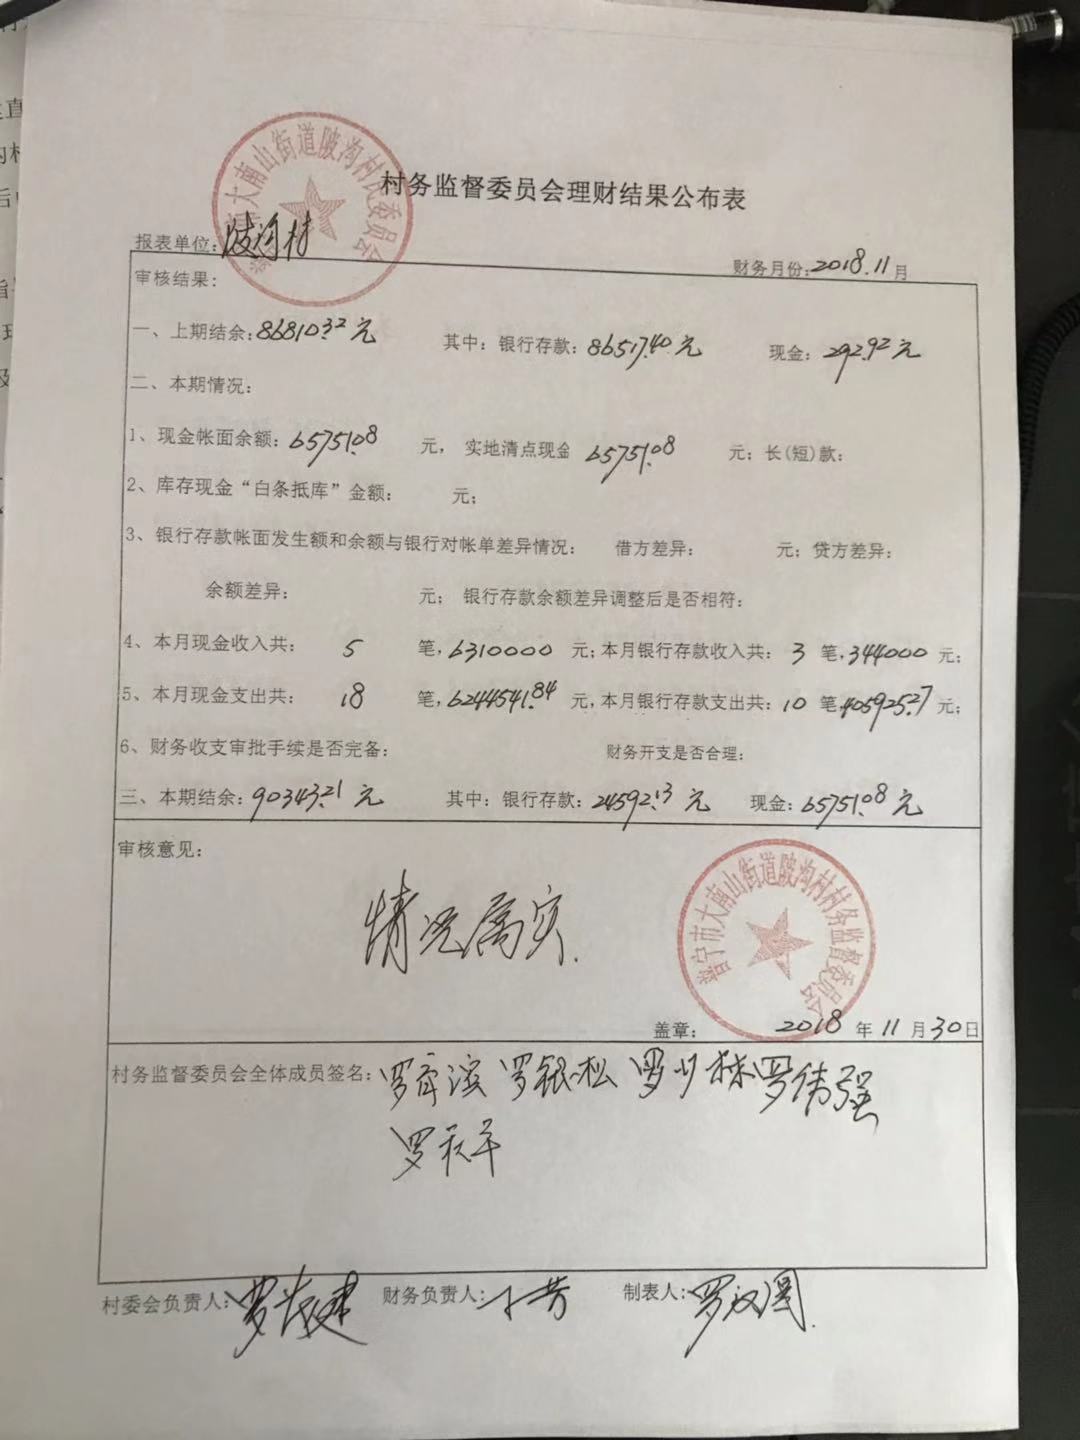 村务监督委员会理财结果公布表
普宁市大南山街道陂沟村民委员会
报表单位:陂沟村 财务月份:2018.11月
审核结果:
一、上期结余:86810.32元 其中:银行存款:86517.40元 现金:292.92元
二、本期情况:
1、现金帐面余额:65751.08 元,实地清点现金 65751.08 元;长(短)款:
2、库存现金“白条抵库”金额: 元;
3、银行存款帐面发生额和余额与银行对帐单差异情况: 借方差异: 元;贷方差异:
余额差异: 元;银行存款余额差异调整后是否相符:
4、本月现金收入共: 5 笔,6310000 元;本月银行存款收入共: 3 笔,344000 元;
5、本月现金支出共: 18 笔,6244541.84 元,本月银行存款支出共:10 笔,405925.27 元;
6、财务收支审批手续是否完备: 财务开支是否合理:
三、本期结余:90343.21元 其中:银行存款:24592.13元 现金:65751.08元
审核意见:
情况属实.
普宁市大南山街道陂沟村村务监督委员会
盖章: 2018 年 11 月30日
村务监督委员会全体成员签名: 罗银松 罗伟强
村委会负责人: 财务负责人: 制表人: